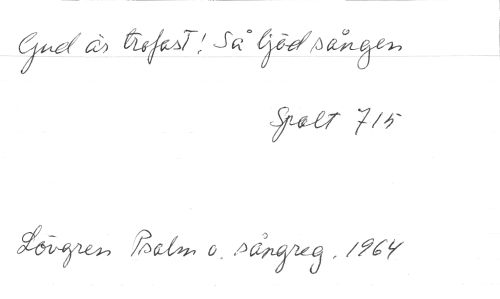 Gud är trofast! Så ljöd sången
Spalt 715
Lövgren Psalm o. sångreg. 1964